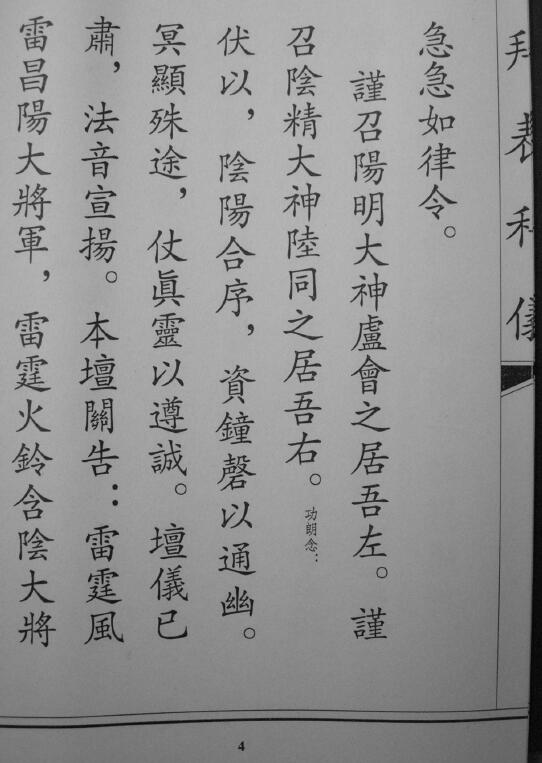 拜表科儀
急急如律令。
謹召陽明大神盧會之居吾左。謹
召陰精大神陸同之居吾右。功朗念：
伏以，陰陽合序，資鐘磬以通幽。
冥顯殊途，仗眞靈以遵誠。壇儀已
肅，法音宣揚。本壇關告：雷霆風
雷昌陽大將軍，雷霆火鈴含陰大將
4